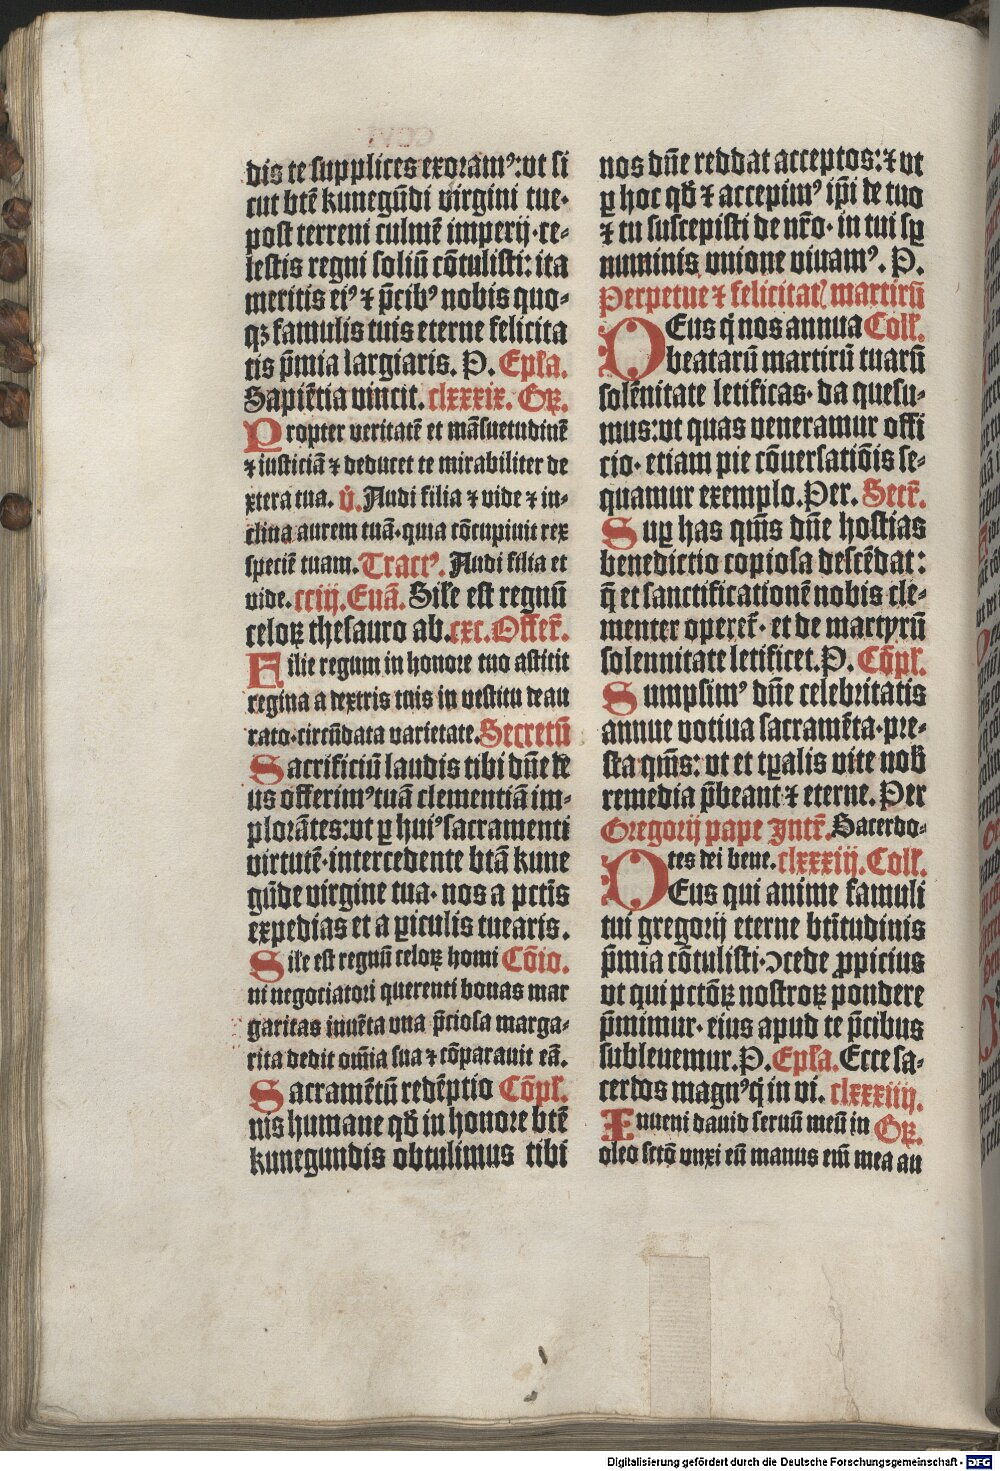 dis te supplices exoramꝰ: vt si
cut btē kunegūdi virgini tue·
post terreni culmē imperij·ce-
lestis regni soliū cōtulisti: ita
meritis eiꝰ ⁊ p̄cibꝰ nobis quo-
qꝫ famulis tuis eterne felicita
tis p̄mia largiaris. P. Ep̄la.
Sapiētia vincit. clxxxix. Gꝝ.
Propter veritatē et māsuetudinē
⁊ iusticiā ⁊ deducet te mirabiliter de
xtera tua. v̄. Audi filia ⁊ vide ⁊ in-
clina aurem tuā·quia cōcupiuit rex
speciē tuam. Tractꝰ. Audi filia et
vide. cciij. Euā. Sil̄e est regnū
celoꝝ thesauro ab. cxc. Offer̄.
Filie regum in honore tuo astitit
regina a dextris tuis in vestitu deau
rato·circūdata varietate. Secretū
Sacrificiū laudis tibi dn̄e de
us offerimꝰ tuā clementiā im-
plorātes: vt ꝑ huiꝰ sacramenti
virtutē·intercedente btā kune
gūde virgine tua· nos a pctīs
expedias et a ꝑiculis tuearis.
Sil̄e est regnū celoꝝ homi Cōio.
ni negociatori querenti bonas mar
garitas inuēta vna p̄ciosa marga-
rita dedit om̄ia sua ⁊ cōparauit eā.
Sacramētū redēptio Cōpl̄.
nis humane qd̄ in honore btē
kunegundis obtulimus tibi
nos dn̄e reddat acceptos: ⁊ vt
ꝑ hoc qd̄ ⁊ accepimꝰ ip̄i de tuo
⁊ tu suscepisti de nr̄o· in tui sꝑ
numinis vnione viuamꝰ. P.
Perpetue ⁊ felicitat̄ martirū
DEus q̄ nos annua Coll̄.
beatarū martirū tuarū
solēnitate letificas· da quesu-
mus: vt quas veneramur offi
cio· etiam pie cōuersatiōis se-
quamur exemplo. Per. Secr̄.
Suꝑ has qm̄s dn̄e hostias
benedictio copiosa descēdat:
q̄ et sanctificationē nobis cle-
menter operet̄· et de martyrū
solennitate letificet. P. Cōpl̄.
Sumpsimꝰ dn̄e celebritatis
annue votiua sacramēta· pre-
sta qm̄s: vt et tꝑalis vite nob̄
remedia p̄beant ⁊ eterne. Per
Gregorij pape Intr̄. Sacerdo-
tes dei bene. clxxxiij. Coll̄.
DEus qui anime famuli
tui gregorij eterne btītudinis
p̄mia cōtulisti· ꝯcede ꝓpicius
vt qui pctōꝝ nostroꝝ pondere
p̄mimur· eius apud te p̄cibus
subleuemur. P. Ep̄la. Ecce sa-
cerdos magnꝰ q̄ in vi. clxxxiiij.
Inueni dauid seruū meū in Gꝝ.
oleo sctō vnxi eū manus em̄ mea au
Digitalisierung gefördert durch die Deutsche Forschungsgemeinschaft - DFG